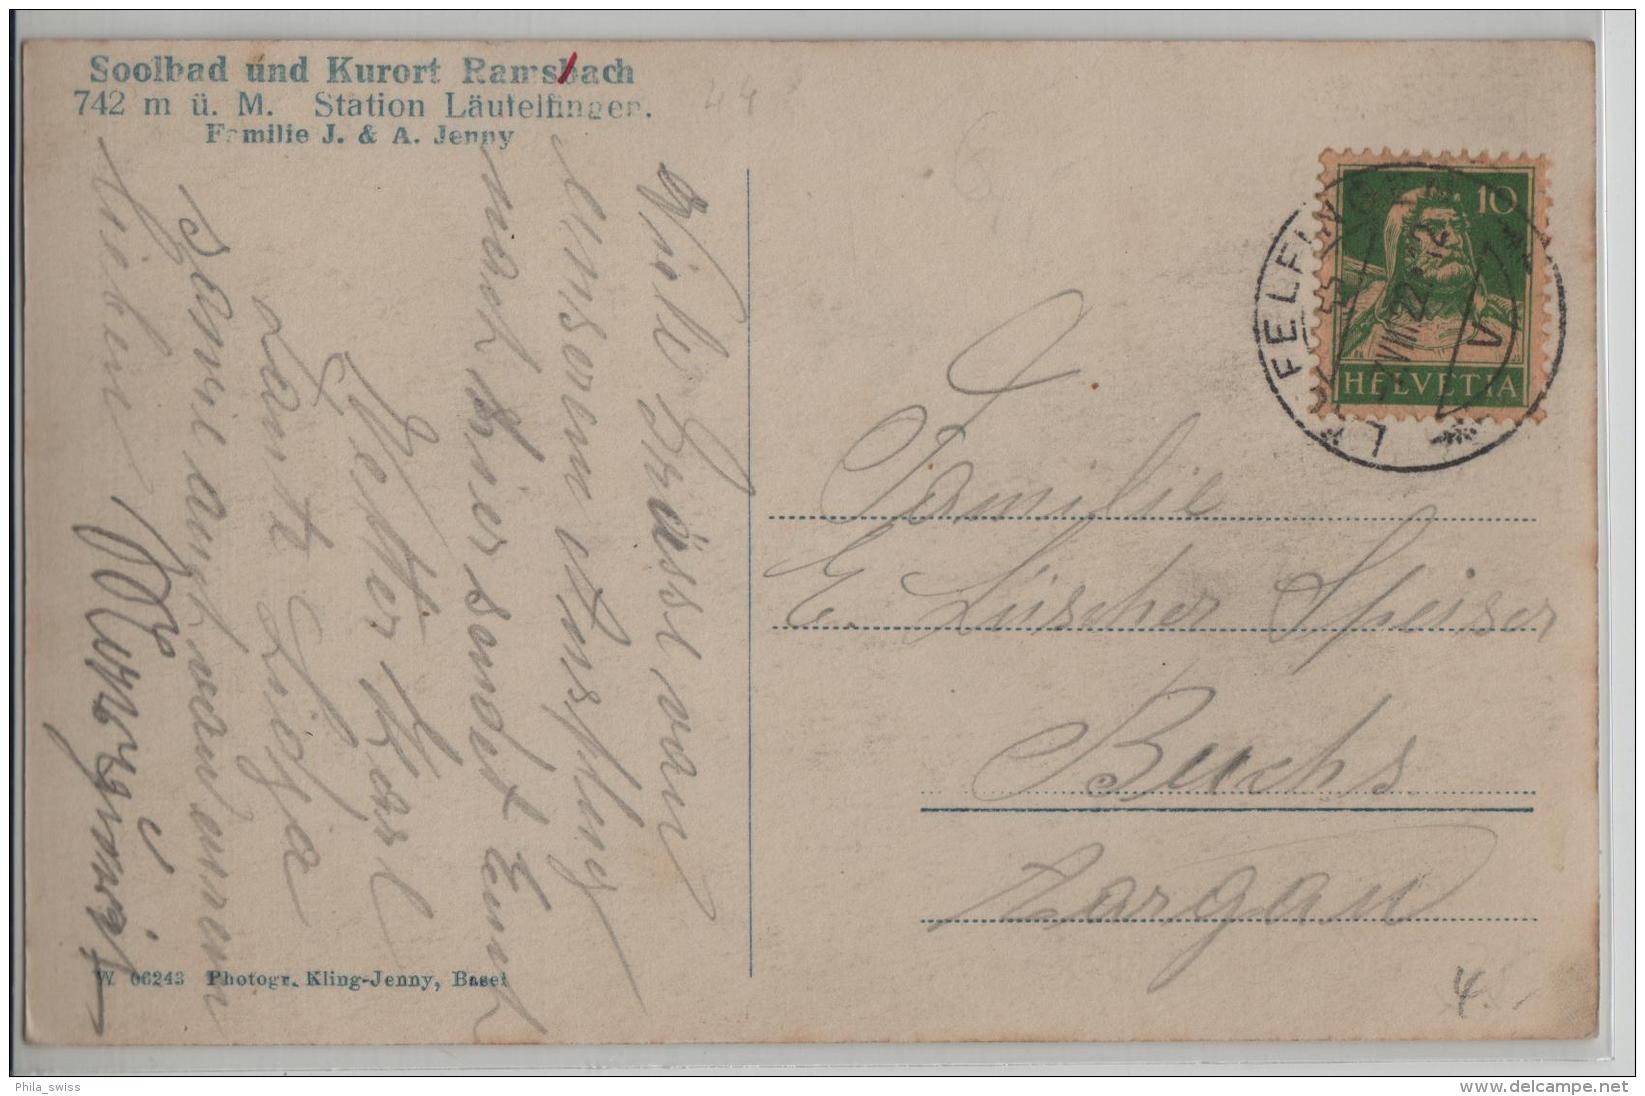 Soolbad und Kurort Ramsbach
742 m ü. M. Station Läufelfingen.
Familie J. & A. Jenny
Viele Grüsse von
unserem Ausflug
nach hier sendet Euch
Vetter Karl
Tante Lisja
sowie auch von uns
lieben
W. 06243 Photogr. Kling-Jenny, Basel
10
HELVETIA
LÄUFELFINGEN
VIII 22. 12
Familie
E. Lüscher Speiser
Buchs
Aargau
4.
Phila_swiss
www.delcampe.net